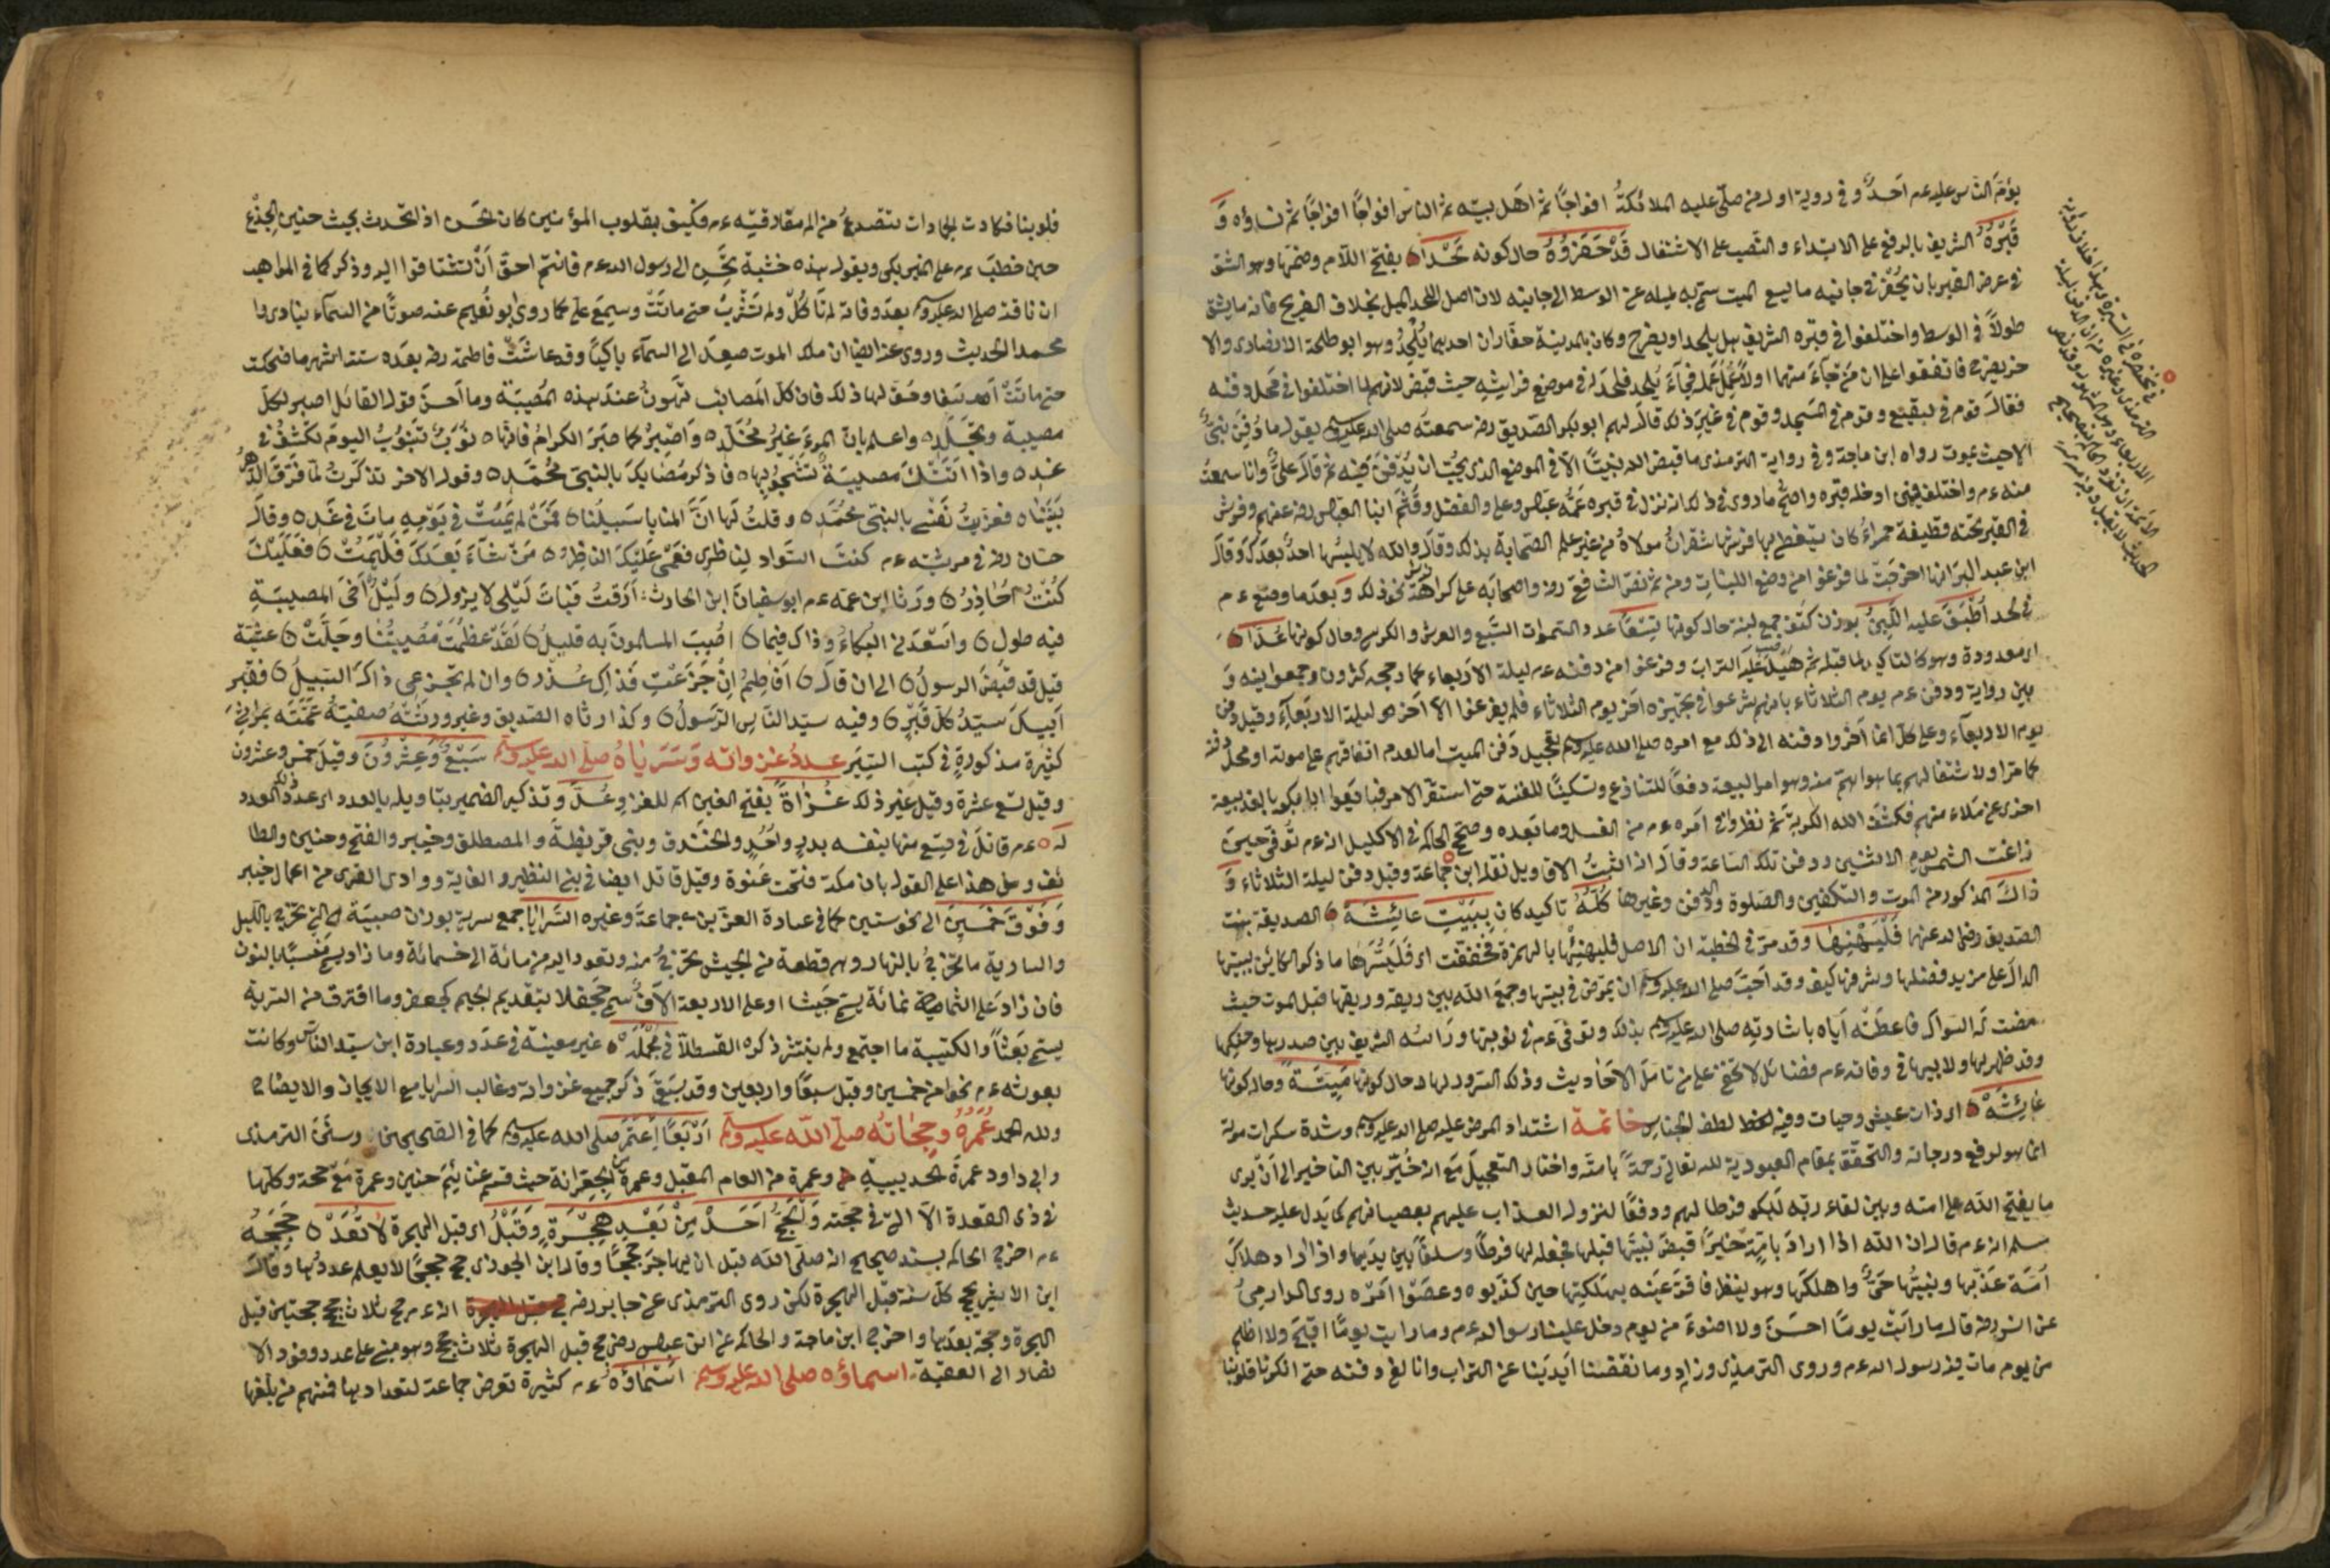 يؤم الناس عليه عم احد وفي رواية اول من صلى عليه الملائكة افواجا ثم اهل بيته ثم الناس افواجا افواجا ثم نساؤه و
قبره الشريف بالرفع على الابتداء والنصب على الاشتغال قد حفروه حال كونه لحدا بفتح اللام وضمها وهو الشق
في عرض القبر بان يحفر في جانبه ما يسع الميت سمي به لميله عن الوسط الى جانبه لان اصل اللحد الميل بخلاف الضريح فانه ما يشق
طولا في الوسط واختلفوا في قبره الشريف هل يلحد او يضرح وكان بالمدينة حفاران احدهما يلحد وهو ابو طلحة الانصاري والا
خر يضرح فاتفقوا على ان من جاء منهما اولا عمل عمله فجاء يلحد فلحد له في موضع فراشه حيث قبض لانهم لما اختلفوا في محل دفنه
فقال قوم في البقيع وقوم في المسجد وقوم في غير ذلك قال لهم ابو بكر الصديق رضه سمعته صلى الله عليه وسلم يقول ما دفن نبي
الا حيث يموت رواه ابن ماجة وفي رواية الترمذي ما قبض الله نبيا الا في الموضع الذي يحب ان يدفن فيه ثم قال علي وانا سمعت
منه عم واختلف فيمن ادخله قبره واصح ما روي في ذلك انه نزل في قبره عمه عباس وعلي والفضل وقثم ابنا العباس رضه عنهم وفرش
في القبر تحته قطيفة حمراء كان يتغطى بها فرشها شقران مولاه من غير علم الصحابة بذلك وقال والله لا يلبسها احد بعدك وقال
ابن عبد البر انها اخرجت لما فرغوا من وضع اللبنات ومن ثم نص الشافعي رضه واصحابه على كراهة نحو ذلك وبعد ما وضع عم
في لحد اطبق عليه اللبن بوزن كتف جمع لبنة حال كونها تسعا عدد السموات السبع والعرش والكرسي وحال كونها عدا
اي معدودة وهو كالتاكيد لما قبله ثم هيل عليه التراب وفرغوا من دفنه عم ليلة الاربعاء كما رجحه كثرون وجمعوا بينه و
بين رواية ودفن عم يوم الثلاثاء بانهم شرعوا في تجهيزه اخر يوم الثلاثاء فلم يفرغوا الا اخر ليلة الاربعاء وقيل دفن
يوم الاربعاء وعلى كل انما اخروا دفنه الى ذلك مع امره صلى الله عليه وسلم بتعجيل دفن الميت اما لعدم اتفاقهم على موته او محل دفنه
كما مر او لاشتغالهم بما هو اهم منه وهو امر البيعة دفعا للتنازع وتسكينا للفتنة حتى استقر الامر فبايعوا ابا بكر بالغد بيعة
اخرى عن ملاء منهم فكشف الله الكربة ثم نظروا في امره عم من الغد وما بعده وصحح الحاكم في الاكليل انه عم توفي حين
زاغت الشمس يوم الاثنين ودفن تلك الساعة وقال انه اثبت الاقاويل نقله ابن جماعة وقيل دفن ليلة الثلاثاء و
ذاك المذكور من الموت والتكفين والصلوة والدفن وغيرها كله تاكيد كان ببيت عائشة الصديقة بنت
الصديق رضي الله عنها فليهنها وقد مر في الخطبة ان الاصل فليهنئها بالهمزة فخففت اي فليسرها ما ذكر الكائن ببيتها
الدال على مزيد فضلها وشرفها كيف وقد احب صلى الله عليه وسلم ان يمرض في بيتها وجمع الله بين ريقه وريقها قبل الموت حيث
مضت له السواك فاعطته اياه باشارته صلى الله عليه وسلم بذلك وتوفي عم في نوبتها وراسه الشريف بين صدرها وحنكها
وقد ظهر لها ولابيها في وفاته عم فضائل لا تخفى على من تامل الاحاديث وذلك السرور لها حال كونها ميتة وحال كونها
عائشة اي ذات عيش وحيات وفيه الحظ لطف الجناس خاتمة اشتداد المرض عليه صلى الله عليه وسلم وشدة سكرات موته
انما هو لرفع درجاته والتحقق بمقام العبودية لله تعالى رحمة بامته واختار التعجيل مع انه خير بين التاخير الى ان يرى
ما يفتح الله على امته وبين لقاء ربه ليكون فرطا لهم ودفعا لنزول العذاب عليهم بعصيانهم كما يدل عليه حديث
مسلم انه عم قال ان الله اذا اراد بامة خيرا قبض نبيها قبلها فجعله لها فرطا وسلفا بين يديها واذا اراد هلاك
امة عذبها ونبيها حي واهلكها وهو ينظر فاقر عينه بهلكتها حين كذبوه وعصوا امره روى الدارمي
عن انس رضه قال ما رايت يوما احسن ولا اضوء من يوم دخل علينا رسول الله عم وما رايت يوما اقبح ولا اظلم
من يوم مات فيه رسول الله عم وروى الترمذي وزاد وما نفضنا ايدينا عن التراب وانا لفي دفنه حتى انكرنا قلوبنا
قلوبنا فكادت الجمادات تتصدع من الم مفارقته عم فكيف بقلوب المؤمنين كان الحسن اذا تحدث بحديث حنين الجذع
حين خطب عم على المنبر بكى ويقول هذه خشبة تحن الى رسول الله عم فانتم احق ان تشتاقوا اليه وذكر كما في المواهب
ان ناقته صلى الله عليه وسلم بعد وفاته لم تاكل ولم تشرب حتى ماتت وسمع علي كما روى ابو نعيم عنه صوتا من السماء ينادي وا
محمداه الحديث وروي عنه ايضا ان ملك الموت صعد الى السماء باكيا وقد عاشت فاطمة رضه بعده ستة اشهر ما ضحكت
حتى ماتت اسفا وحق لها ذلك فان كل المصائب تهون عند هذه المصيبة وما احسن قول القائل اصبر لكل
مصيبة وتجلد واعلم بان المرء غير مخلد واصبر كما صبر الكرام فانها نوب تنوب اليوم تكشف في
غد واذا اتتك مصيبة تشجو بها فاذكر مصابك بالنبي محمد وقول الاخر تذكرت لما فرق الدهر
بيننا فعزيت نفسي بالنبي محمد وقلت لها ان المنايا سبيلنا فمن لم يمت في يومه مات في غد وقال
حسان رضه في مرثيته عم كنت السواد لناظري فعمي عليك الناظر من شاء بعدك فليمت فعليك
كنت احاذر ورثا ابن عمه عم ابو سفيان ابن الحارث ارقت فبات ليلي لا يزول وليل اخي المصيبة
فيه طول واسعدني البكاء وذاك فيما اصيب المسلمون به قليل لقد عظمت مصيبتنا وجلت عشية
قيل قد قبض الرسول الى ان قال افاطم ان جزعت فذاك عذر وان لم تجزعي ذاك السبيل فقبر
ابيك سيد كل قبر وفيه سيد الناس الرسول وكذا رثاه الصديق وغيره ورثته صفية عمته بمراثي
كثيرة مذكورة في كتب السير عدد غزواته وسراياه صلى الله عليه وسلم سبع وعشرون وقيل خمس وعشرون
وقيل تسع عشرة وقيل غير ذلك غزاة بفتح الغين اسم للغزو وعد وتذكير الضمير بتاويله بالعدد اي عدد ذلك العدد
له عم قاتل في تسع منها بنفسه بدر واحد والخندق وبني قريظة والمصطلق وخيبر والفتح وحنين والطا
ئف وعلى هذا على القول بان مكة فتحت عنوة وقيل قاتل ايضا في بني النظير والغابة ووادي القرى من اعمال خيبر
وفوق خمسين الى نحو ستين كما في عبارة العز بن جماعة وغيره السرايا جمع سرية بوزن صبية هي التي تخرج بالليل
والسارية ما تخرج بالنهار وهي قطعة من الجيش تخرج منه وتعود اليه من مائة الى خمسمائة وما زاد يسمى منسبا بالنون
فان زاد على الثمانمائة يسمى جيشا او على الاربعة الاف سمي جحفلا بتقديم الجيم كجعفر وما افترق من السرية
يسمى بعثا والكتيبة ما اجتمع ولم ينتشر ذكره القسطلاني في مجمله غير معينة في عدد وعبارة ابن سيد الناس وكانت
بعوثه عم نحوا من خمسين وقيل سبعا واربعين وقد سبق ذكر جميع غزواته وغالب السرايا مع الايجاز والايضاح
ولله الحمد عمره وحجاته صلى الله عليه وسلم اربعا اعتمر صلى الله عليه وسلم كما في الصحيحين وسنن الترمذي
وابي داود عمرة الحديبية وعمرة من العام المقبل وعمرة من الجعرانة حيث قسم غنايم حنين وعمرة مع حجة وكلها
في ذي القعدة الا التي في حجته وليحج احد من بعد هجرة وقبل اي قبل الهجرة لا تعد حججه
عم اخرج الحاكم بسند صحيح انه صلى الله قبل ان يهاجر حججا وقال ابن الجوزي حج حججا لا يعلم عددها وقال
ابن الاثير حج كل سنة قبل الهجرة لكن روى الترمذي عن جابر رضه انه عم حج ثلاث حجج حجتين قبل
الهجرة وحجة بعدها واخرج ابن ماجة والحاكم عن ابن عباس رضه حج قبل الهجرة ثلاث حجج وهو مبني على عدد وفود الا
نصار الى العقبة اسماؤه صلى الله عليه وسلم اسماؤه عم كثيرة تعرض جماعة لتعدادها فمنهم من بلغها